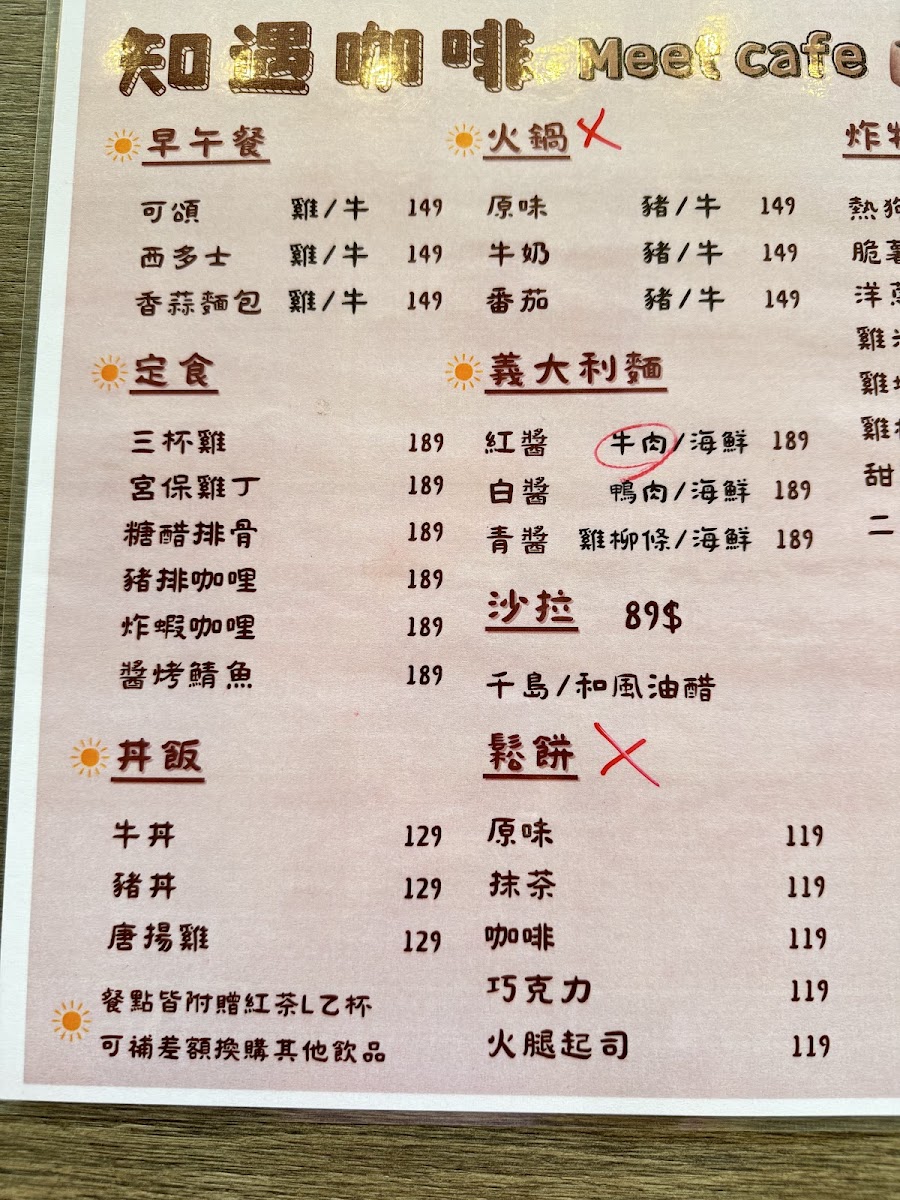 知遇咖啡 Meet cafe
早午餐
可頌 雞/牛 149
西多士 雞/牛 149
香蒜麵包 雞/牛 149
定食
三杯雞 189
宮保雞丁 189
糖醋排骨 189
豬排咖哩 189
炸蝦咖哩 189
醬烤鯖魚 189
丼飯
牛丼 129
豬丼 129
唐揚雞 129
餐點皆附贈紅茶L乙杯
可補差額換購其他飲品
火鍋
原味 豬/牛 149
牛奶 豬/牛 149
番茄 豬/牛 149
義大利麵
紅醬 牛肉/海鮮 189
白醬 鴨肉/海鮮 189
青醬 雞柳條/海鮮 189
沙拉 89$
千島/和風油醋
鬆餅
原味 119
抹茶 119
咖啡 119
巧克力 119
火腿起司 119
炸
熱
脆
洋
雞
雞
雞
甜
二